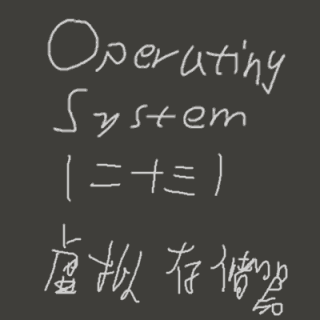 Operating
System
(二十三)
虚拟存储器